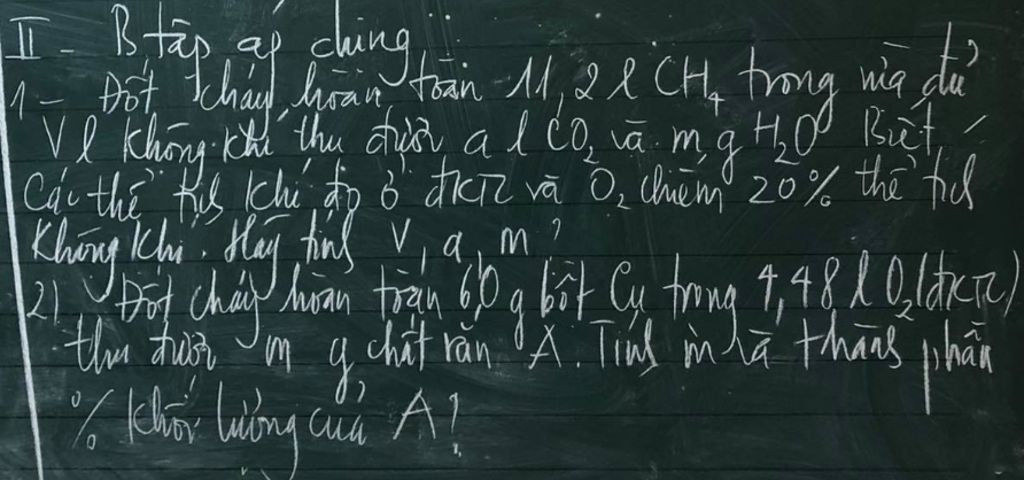 II - B tập áp dụng
1 - Đốt cháy hoàn toàn 11,2 l CH₄ trong vừa đủ
V l không khí thu được a l CO₂ và m g H₂O Biết
Các thể tích khí đo ở đktc và O₂ chiếm 20% thể tích
không khí. Hãy tính V, a, m ?
2) Đốt cháy hoàn toàn 60 g bột Cu trong 4,48 l O₂ (đktc)
thu được m g chất rắn A. Tính m và thành phần
% khối lượng của A ?